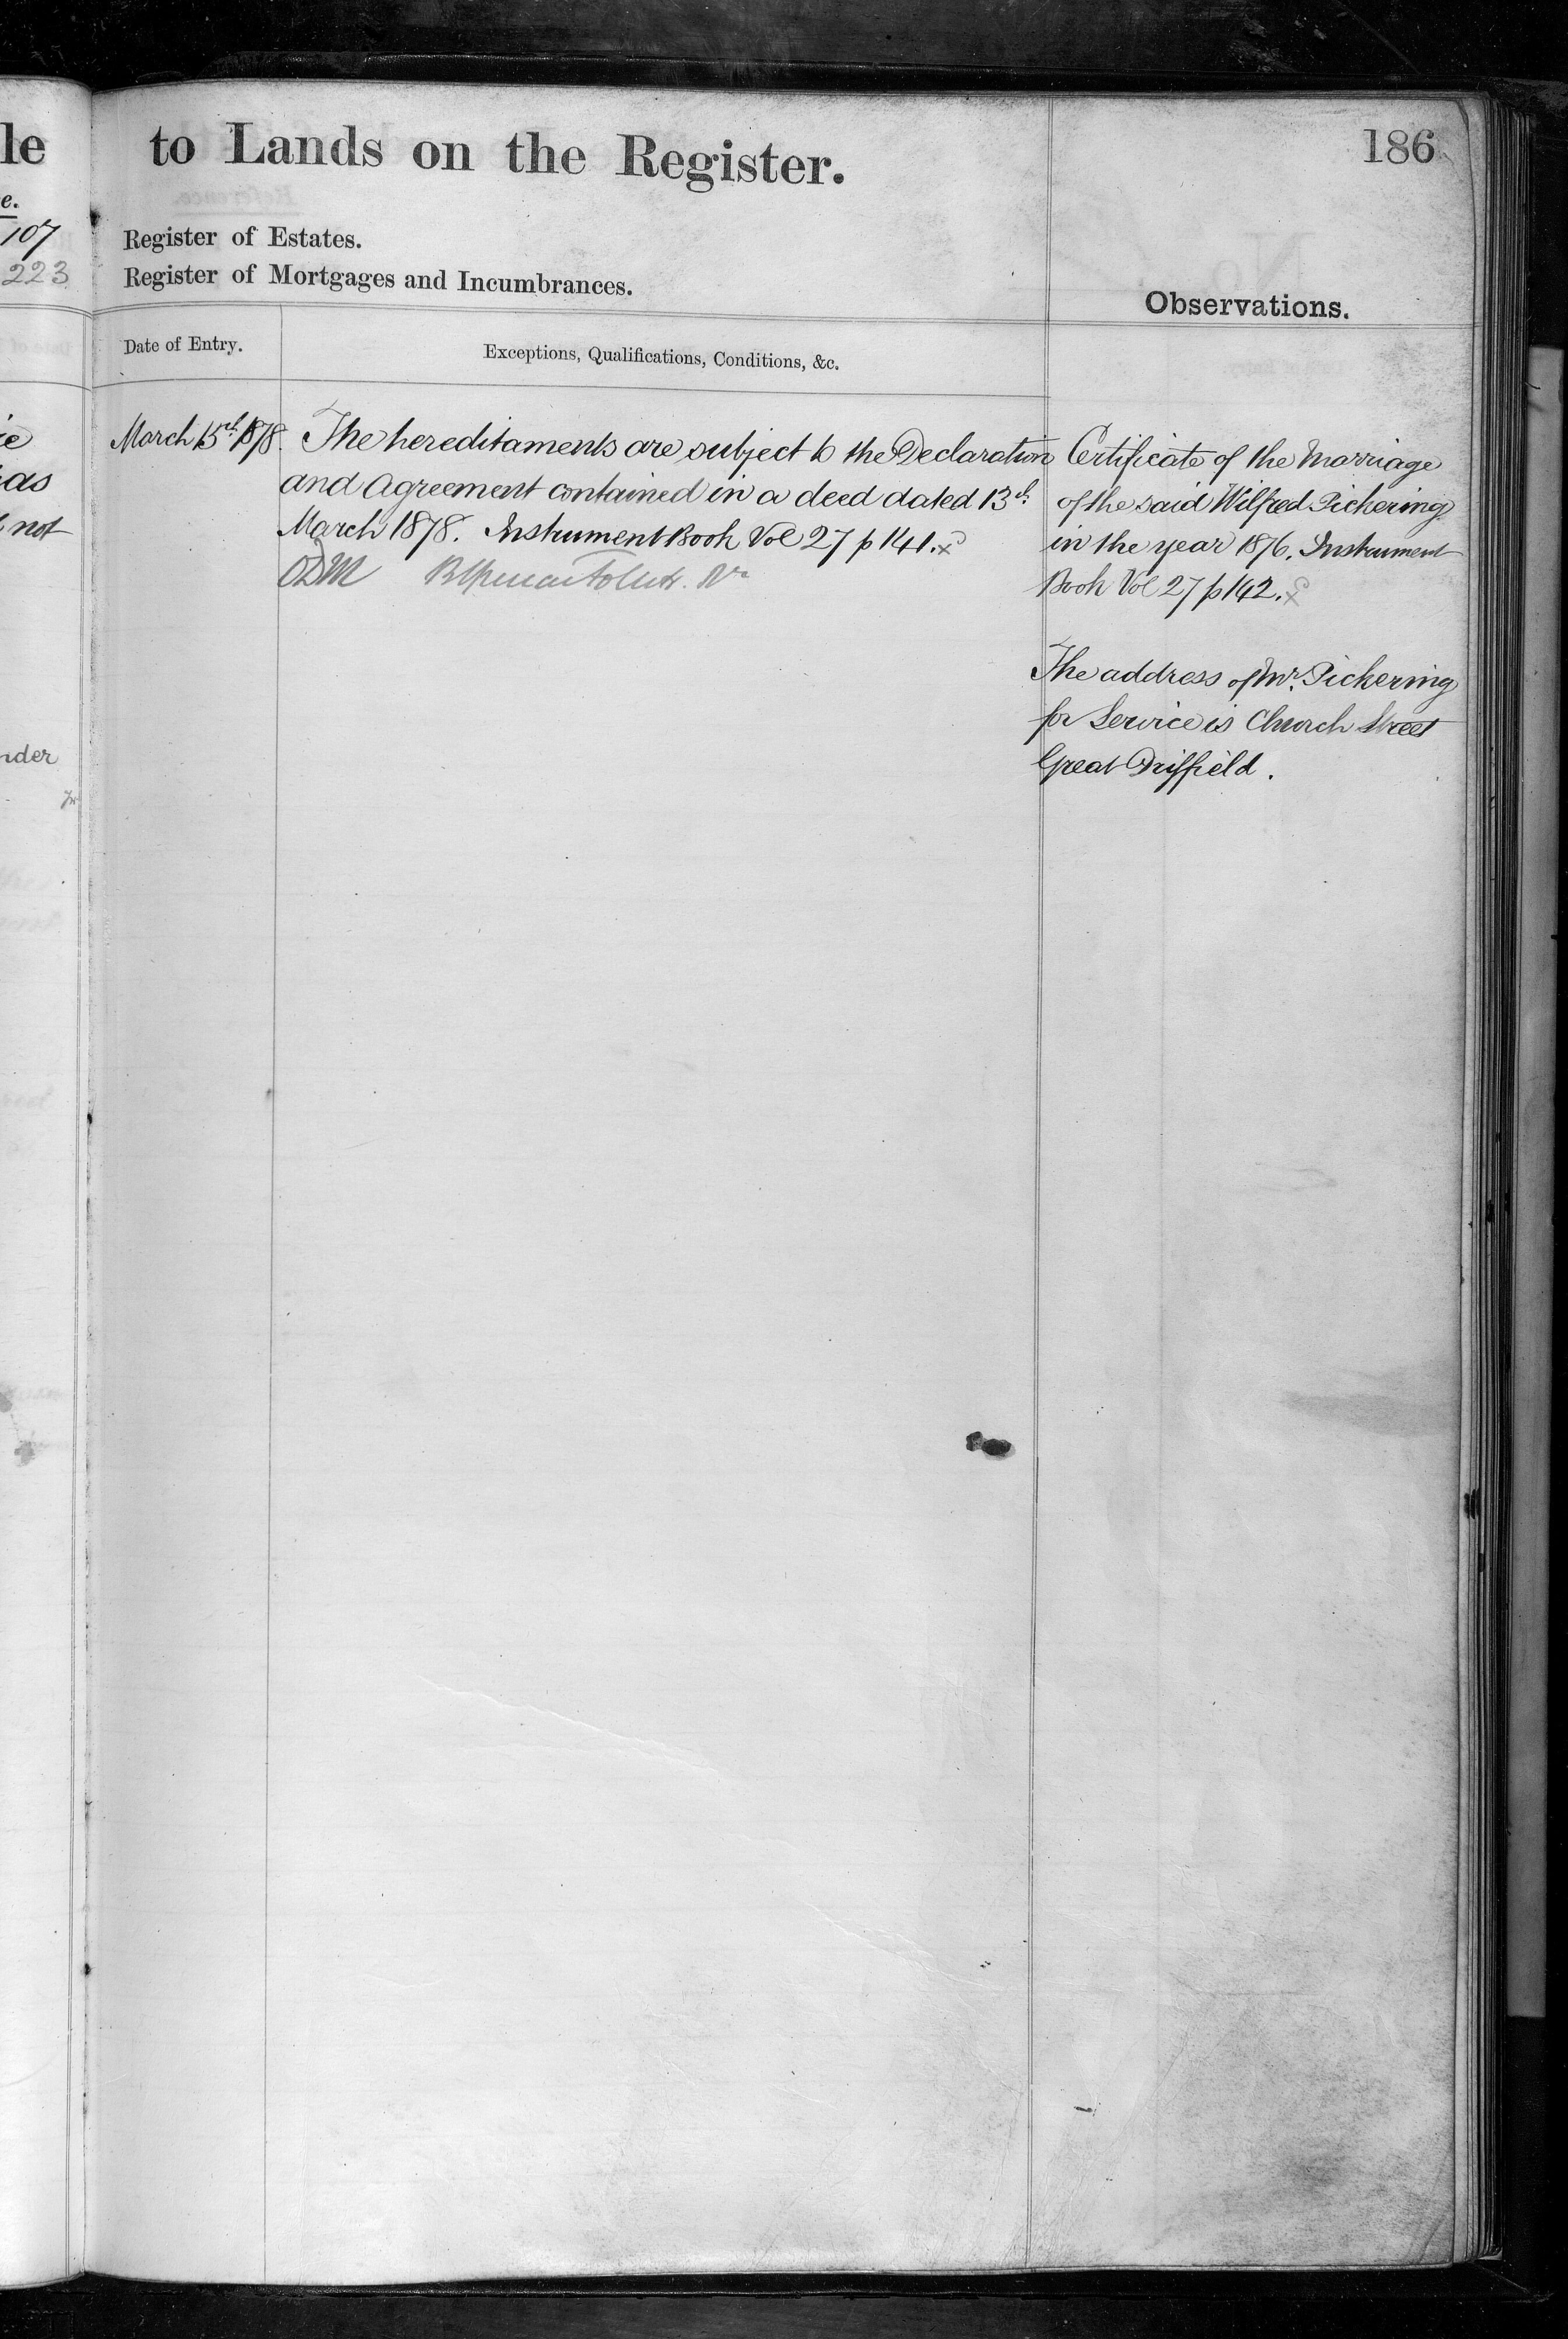 le
to Lands on the Register.
186
e.
107
223
Register of Estates.
Register of Mortgages and Incumbrances.
Observations.
Date of Entry.
Exceptions, Qualifications, Conditions, &c.
as
not
nder
March 15th 1878.
The hereditaments are subject to the Declaration
and Agreement contained in a deed dated 13th
March 1878. Instrument Book Vol 27 p 141.
Certificate of the Marriage
of the said Wilfred Pickering
in the year 1876. Instrument
Book Vol 27 p 142.
The address of Mr. Pickering
for Service is Church Street
Great Driffield.